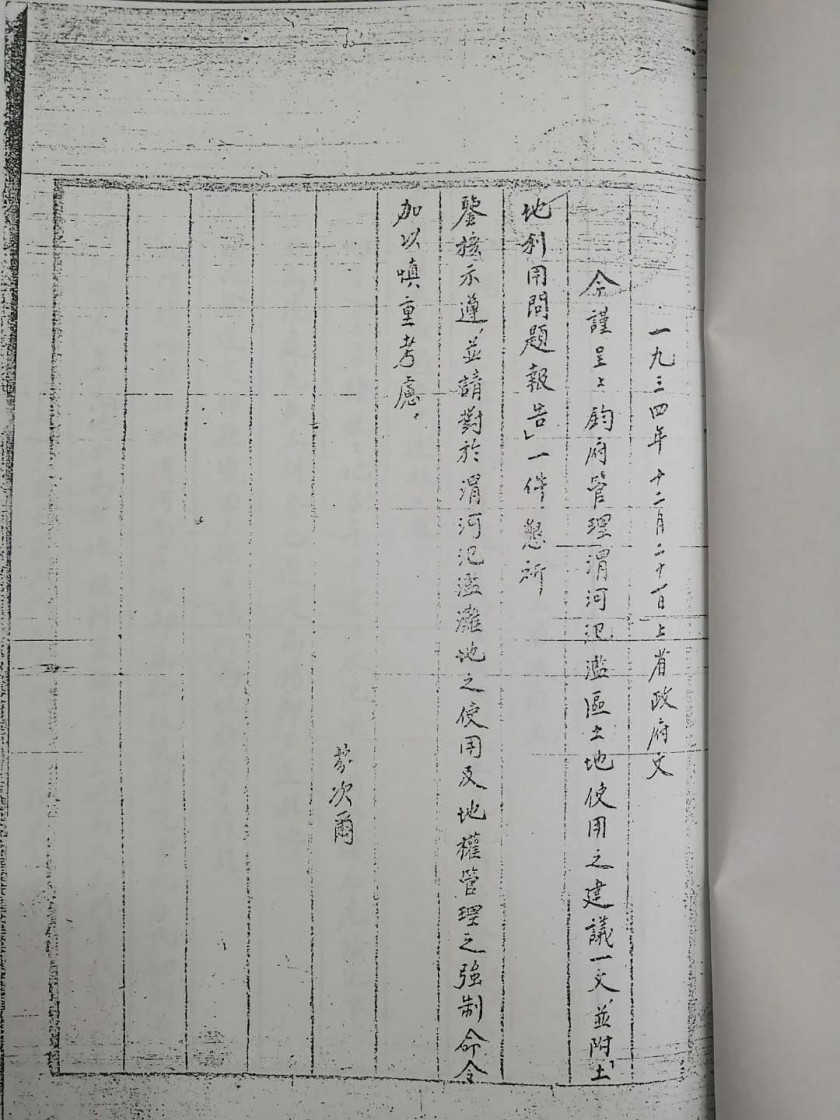 一九三四年十二月二十一日上省政府文
今謹呈上鈞府管理渭河氾濫區土地使用之建議一文，並附「土
地利用問題報告」一件，懇祈
鑒核示遵，並請對於渭河氾濫灘地之使用及地權管理之強制命令
加以慎重考慮。
芬次爾